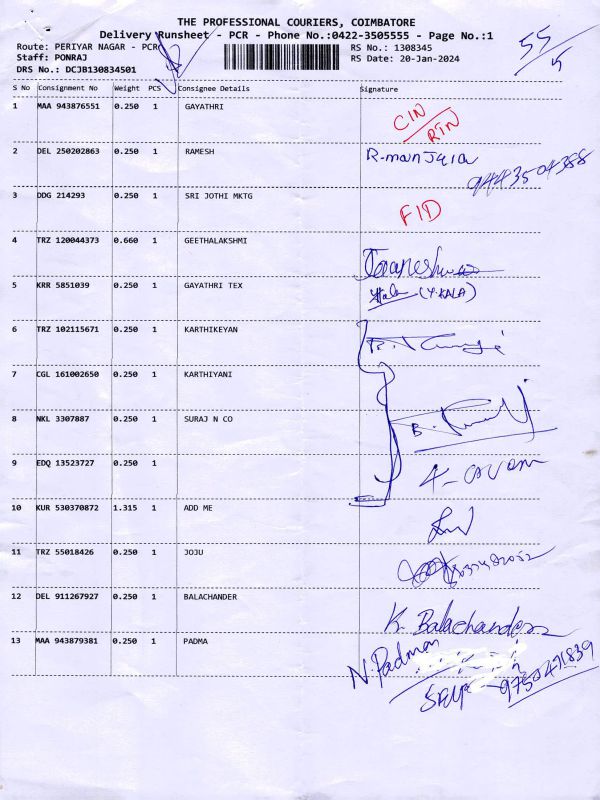 THE PROFESSIONAL COURIERS, COIMBATORE
Delivery Runsheet - PCR - Phone No.:0422-3505555 - Page No.:1
Route: PERIYAR NAGAR - PCRC
RS No.: 1308345
Staff: PONRAJ
RS Date: 20-Jan-2024
DRS No.: DCJB130834501
55/5
S No Consignment No Weight PCS Consignee Details Signature
1 MAA 943876551 0.250 1 GAYATHRI
CIN
RTN
2 DEL 250202863 0.250 1 RAMESH
9443504388
3 DDG 214293 0.250 1 SRI JOTHI MKTG
FID
4 TRZ 120044373 0.660 1 GEETHALAKSHMI
5 KRR 5851039 0.250 1 GAYATHRI TEX
(Y.KALA)
6 TRZ 102115671 0.250 1 KARTHIKEYAN
7 CGL 161002650 0.250 1 KARTHIYANI
8 NKL 3307887 0.250 1 SURAJ N CO
9 EDQ 13523727 0.250 1
10 KUR 530370872 1.315 1 ADD ME
11 TRZ 55018426 0.250 1 JOJU
12 DEL 911267927 0.250 1 BALACHANDER
K. Balachander
13 MAA 943879381 0.250 1 PADMA
N. Padman
9750471839